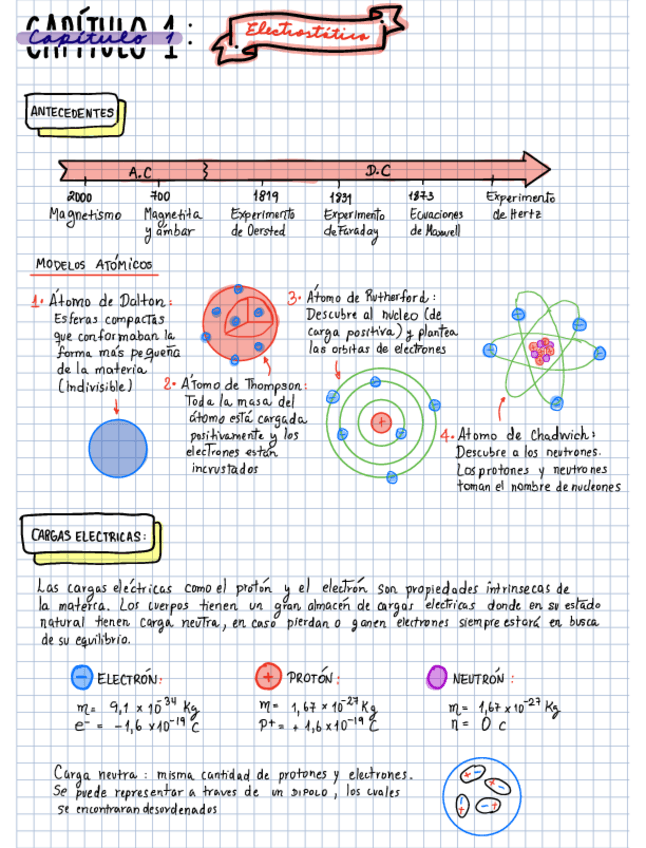 CAPÍTULO 1:
Capítulo 1
Electrostática
ANTECEDENTES
A.C
D.C
2000
700
1819
1831
1873
Magnetismo
Magnetita
y ámbar
Experimento
de Oersted
Experimento
de Faraday
Ecuaciones
de Maxwell
Experimento
de Hertz
MODELOS ATÓMICOS
1. Átomo de Dalton:
Esferas compactas
que conformaban la
forma más pequeña
de la materia
(indivisible)
2. Átomo de Thompson:
Toda la masa del
átomo está cargada
positivamente y los
electrones están
incrustados
3. Átomo de Rutherford:
Descubre al nucleo (de
carga positiva) y plantea
las orbitas de electrones
4. Atomo de Chadwich:
Descubre a los neutrones.
Los protones y neutrones
toman el nombre de nucleones
CARGAS ELECTRICAS:
Las cargas eléctricas como el protón y el electrón son propiedades intrinsecas de
la materia. Los cuerpos tienen un gran almacén de cargas electricas donde en su estado
natural tienen carga neutra, en caso pierdan o ganen electrones siempre estará en busca
de su equilibrio.
- ELECTRÓN:
m = 9,1 x 10^-34 Kg
e- = -1,6 x10^-19 C
+ PROTÓN:
m = 1,67 x 10^-27 Kg
P+ = + 1,6 x10^-19 C
NEUTRÓN:
m = 1,67 x 10^-27 Kg
n = 0 c
Carga neutra : misma cantidad de protones y electrones.
Se puede representar a traves de un DIPOLO, los cuales
se encontraran desordenados